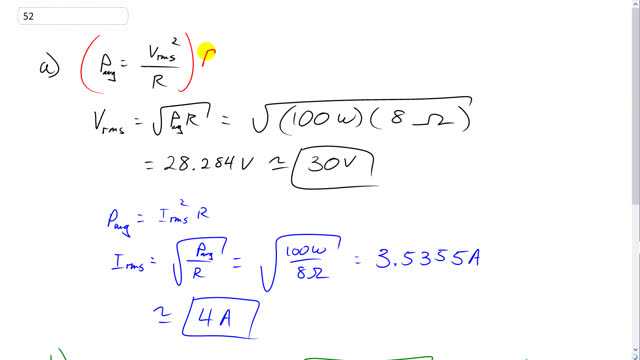 52
a) ( P_avg = V_rms² / R ) R
V_rms = √(P_avg R) = √((100W)(8Ω))
= 28.284V ≃ 30V
P_avg = I_rms² R
I_rms = √(P_avg / R) = √(100W / 8Ω) = 3.5355A
≃ 4A